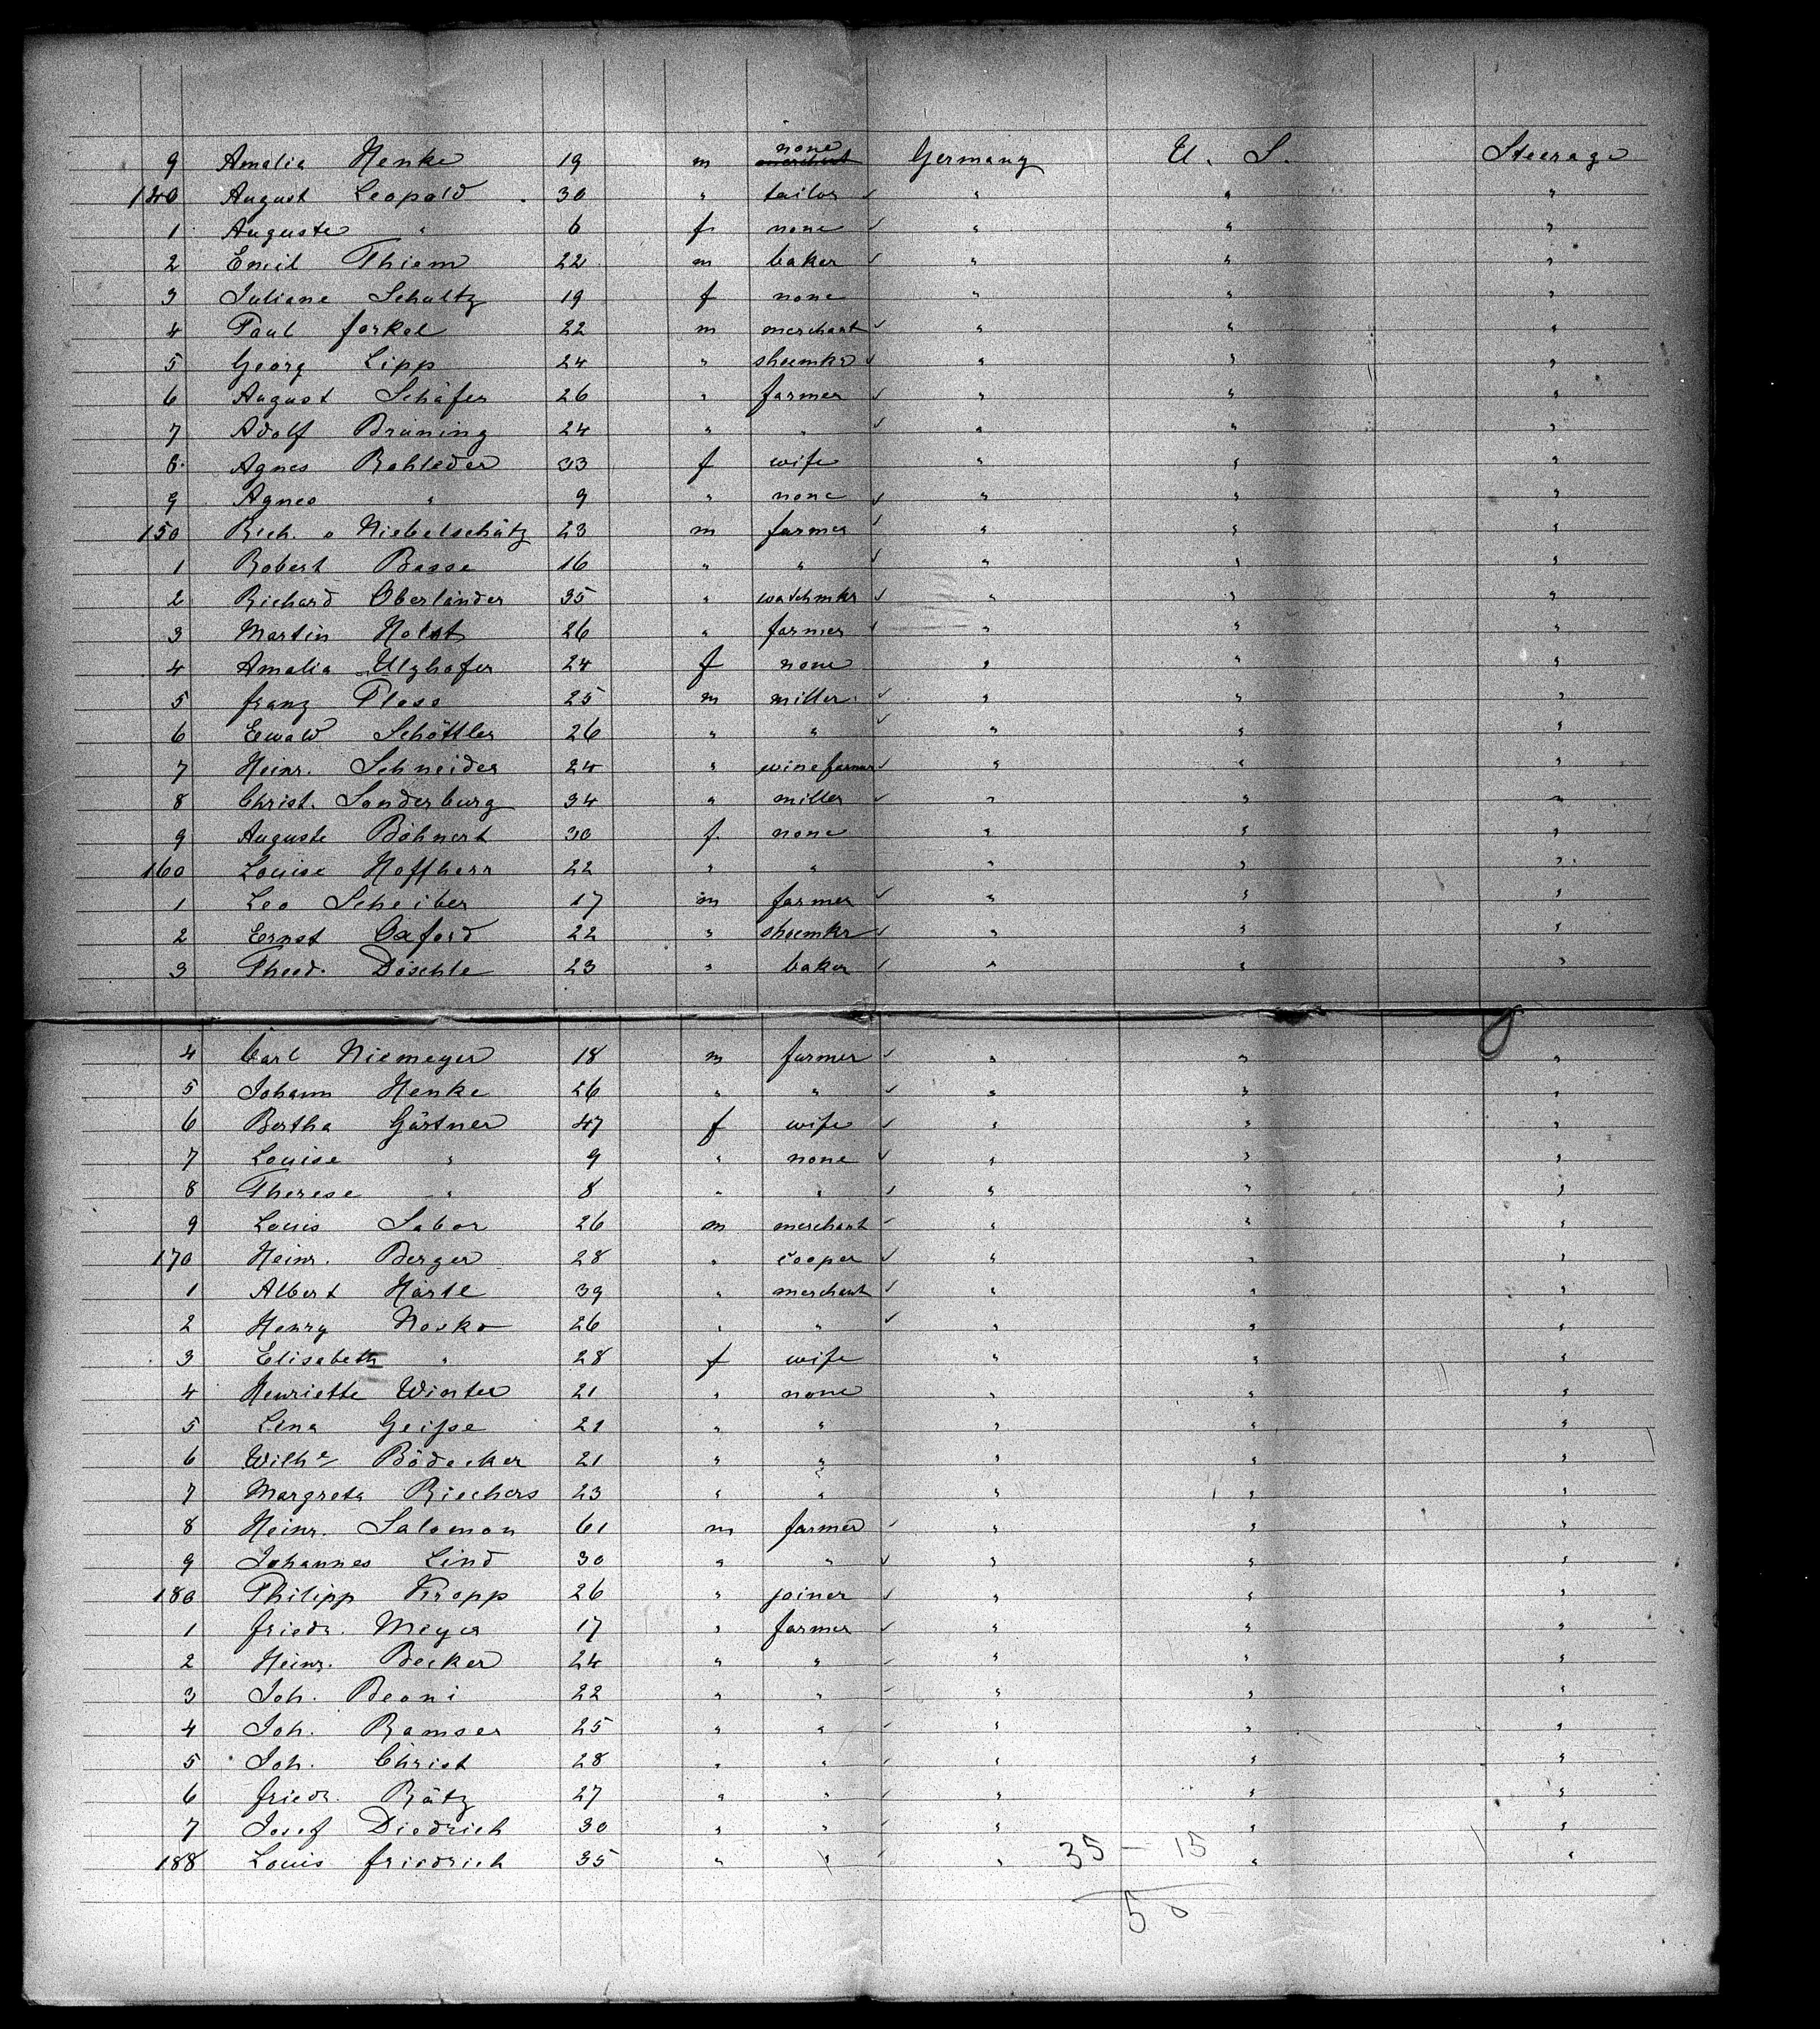 9 Amalia Henke 19 m none merchant Germany U. S. Steerage
140 August Leopold 30 " tailor " " "
1 Auguste " 6 f none " " "
2 Emil Thiem 22 m baker " " "
3 Juliane Schultz 19 f none " " "
4 Paul Forkel 22 m merchant " " "
5 Georg Lipp 24 " shoemkr " " "
6 August Schäfer 26 " farmer " " "
7 Adolf Bruning 24 " " " " "
8 Agnes Rohleder 33 f wife " " "
9 Agnes " 9 " none " " "
150 Rich. v Niebelschütz 23 m farmer " " "
1 Robert Basse 16 " " " " "
2 Richard Oberländer 35 " watchmkr " " "
3 Martin Holst 26 " farmer " " "
4 Amalia Ulzhofer 24 f none " " "
5 Franz Ploss 25 m miller " " "
6 Ewald Schöttler 26 " " " " "
7 Heinr. Schneider 24 " winefarmer " " "
8 Christ. Sonderburg 34 " miller " " "
9 Auguste Böhnert 30 f none " " "
160 Louise Hoffherr 22 " " " " "
1 Leo Scheiber 17 m farmer " " "
2 Ernst Oxford 22 " shoemkr " " "
3 Theod. Döschle 23 " baker " " "
4 Carl Niemeyer 18 m farmer " " "
5 Johann Henke 26 " " " " "
6 Bertha Gärtner 47 f wife " " "
7 Louise " 9 " none " " "
8 Therese " 8 " " " " "
9 Louis Sabor 26 m merchant " " "
170 Heinr. Berger 28 " cooper " " "
1 Albert Härle 39 " merchant " " "
2 Henry Nosko 26 " " " " "
3 Elisabeth " 28 f wife " " "
4 Henriette Winter 21 " none " " "
5 Lina Geisse 21 " " " " "
6 Wilhe Bödecker 21 " " " " "
7 Margreta Riechers 23 " " " " "
8 Heinr. Salomon 61 m farmer " " "
9 Johannes Lind 30 " " " " "
180 Philipp Kropp 26 " joiner " " "
1 Friedr. Meyer 17 " farmer " " "
2 Heinr. Becker 24 " " " " "
3 Joh. Beoni 22 " " " " "
4 Joh. Ramser 25 " " " " "
5 Joh. Christ 28 " " " " "
6 Friedr. Rätz 27 " " " " "
7 Josef Diedrich 30 " " " " "
188 Louis Friedrich 35 " " " " "
35 – 15
50